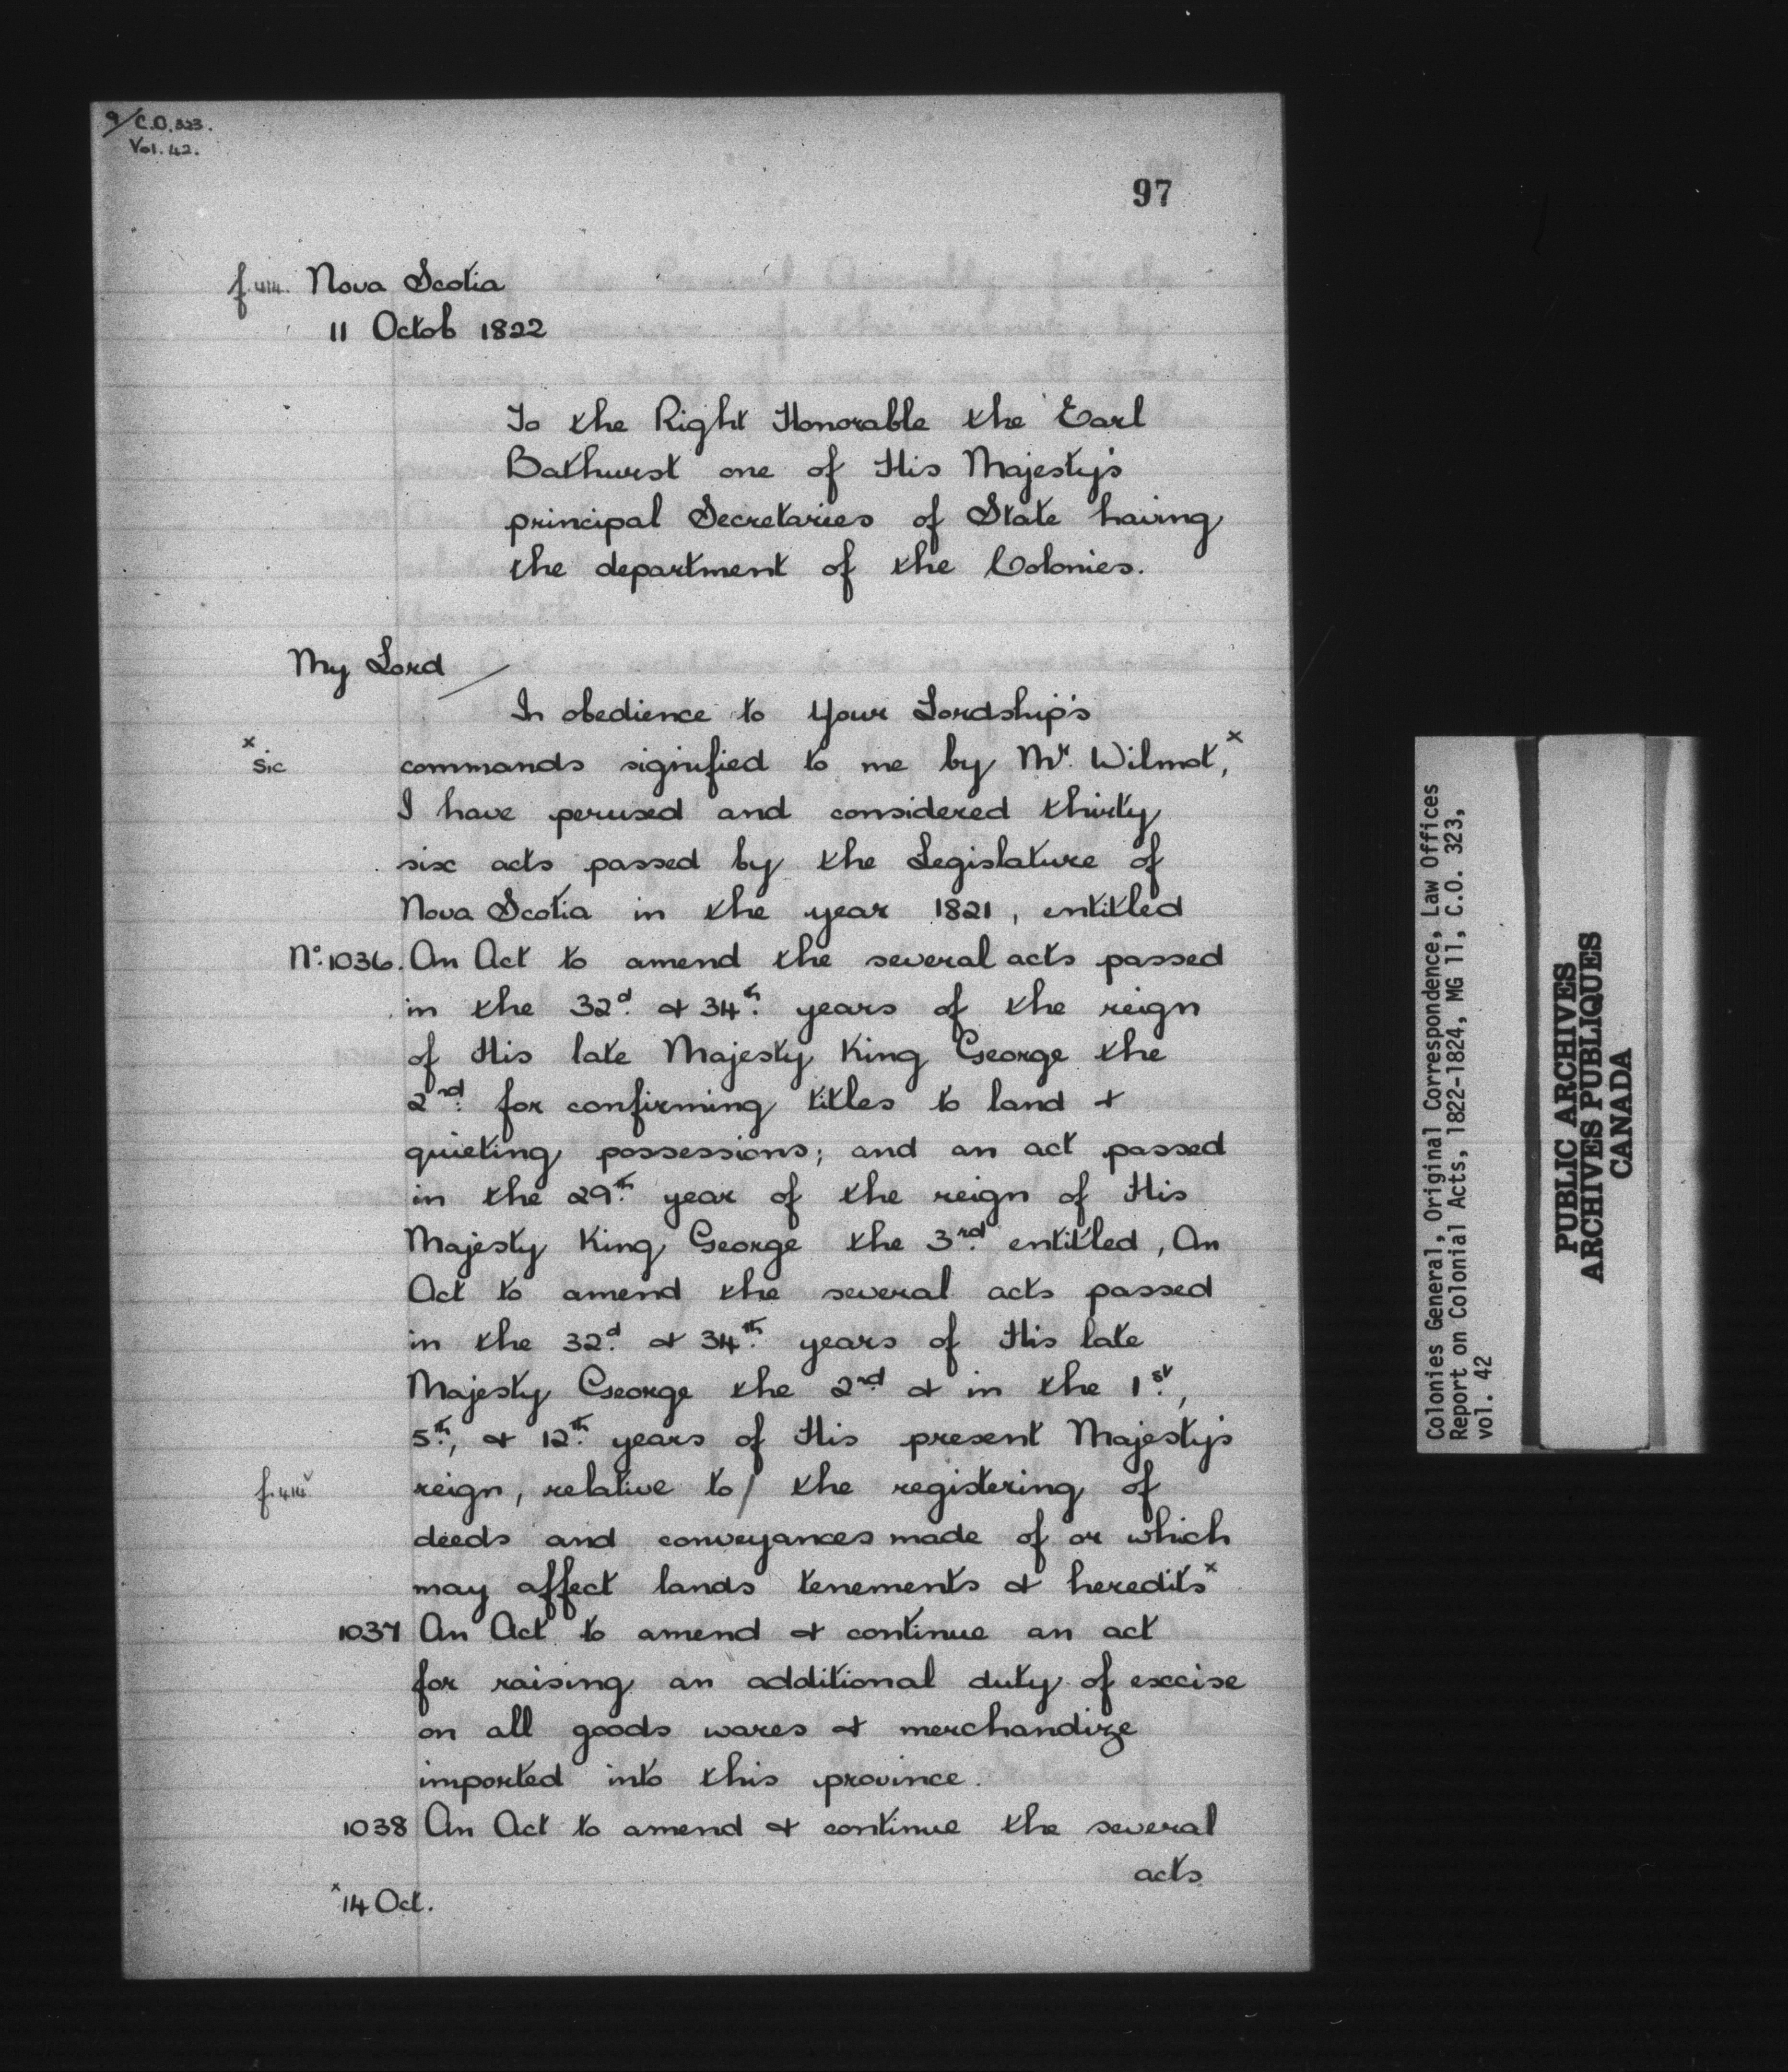 9/C.O. 323.
Vol. 42.
97
f. 414. Nova Scotia
11 Octob 1822
To the Right Honorable the Earl
Bathurst one of His Majesty's
principal Secretaries of State having
the department of the Colonies.
My Lord
In obedience to Your Lordship's
x
sic
commands signified to me by Mr. Wilmot,x
I have perused and considered thirty
six acts passed by the Legislature of
Nova Scotia in the year 1821, entitled
No. 1036. An Act to amend the several acts passed
in the 32d. & 34th. years of the reign
of His late Majesty King George the
2nd. for confirming titles to land &
quieting possessions; and an act passed
in the 29th. year of the reign of His
Majesty King George the 3rd. entitled, An
Act to amend the several acts passed
in the 32d. & 34th. years of His late
Majesty George the 2nd & in the 1st.,
5th., & 12th. years of His present Majesty's
f. 414v reign, relative to/ the registering of
deeds and conveyances made of or which
may affect lands tenements & heredits x
1037 An Act to amend & continue an act
for raising an additional duty of excise
on all goods wares & merchandize
imported into this province.
1038 An Act to amend & continue the several
acts
x 14 Oct.
Colonies General, Original Correspondence, Law Offices
Report on Colonial Acts, 1822-1824, MG 11, C.O. 323,
vol. 42
PUBLIC ARCHIVES
ARCHIVES PUBLIQUES
CANADA